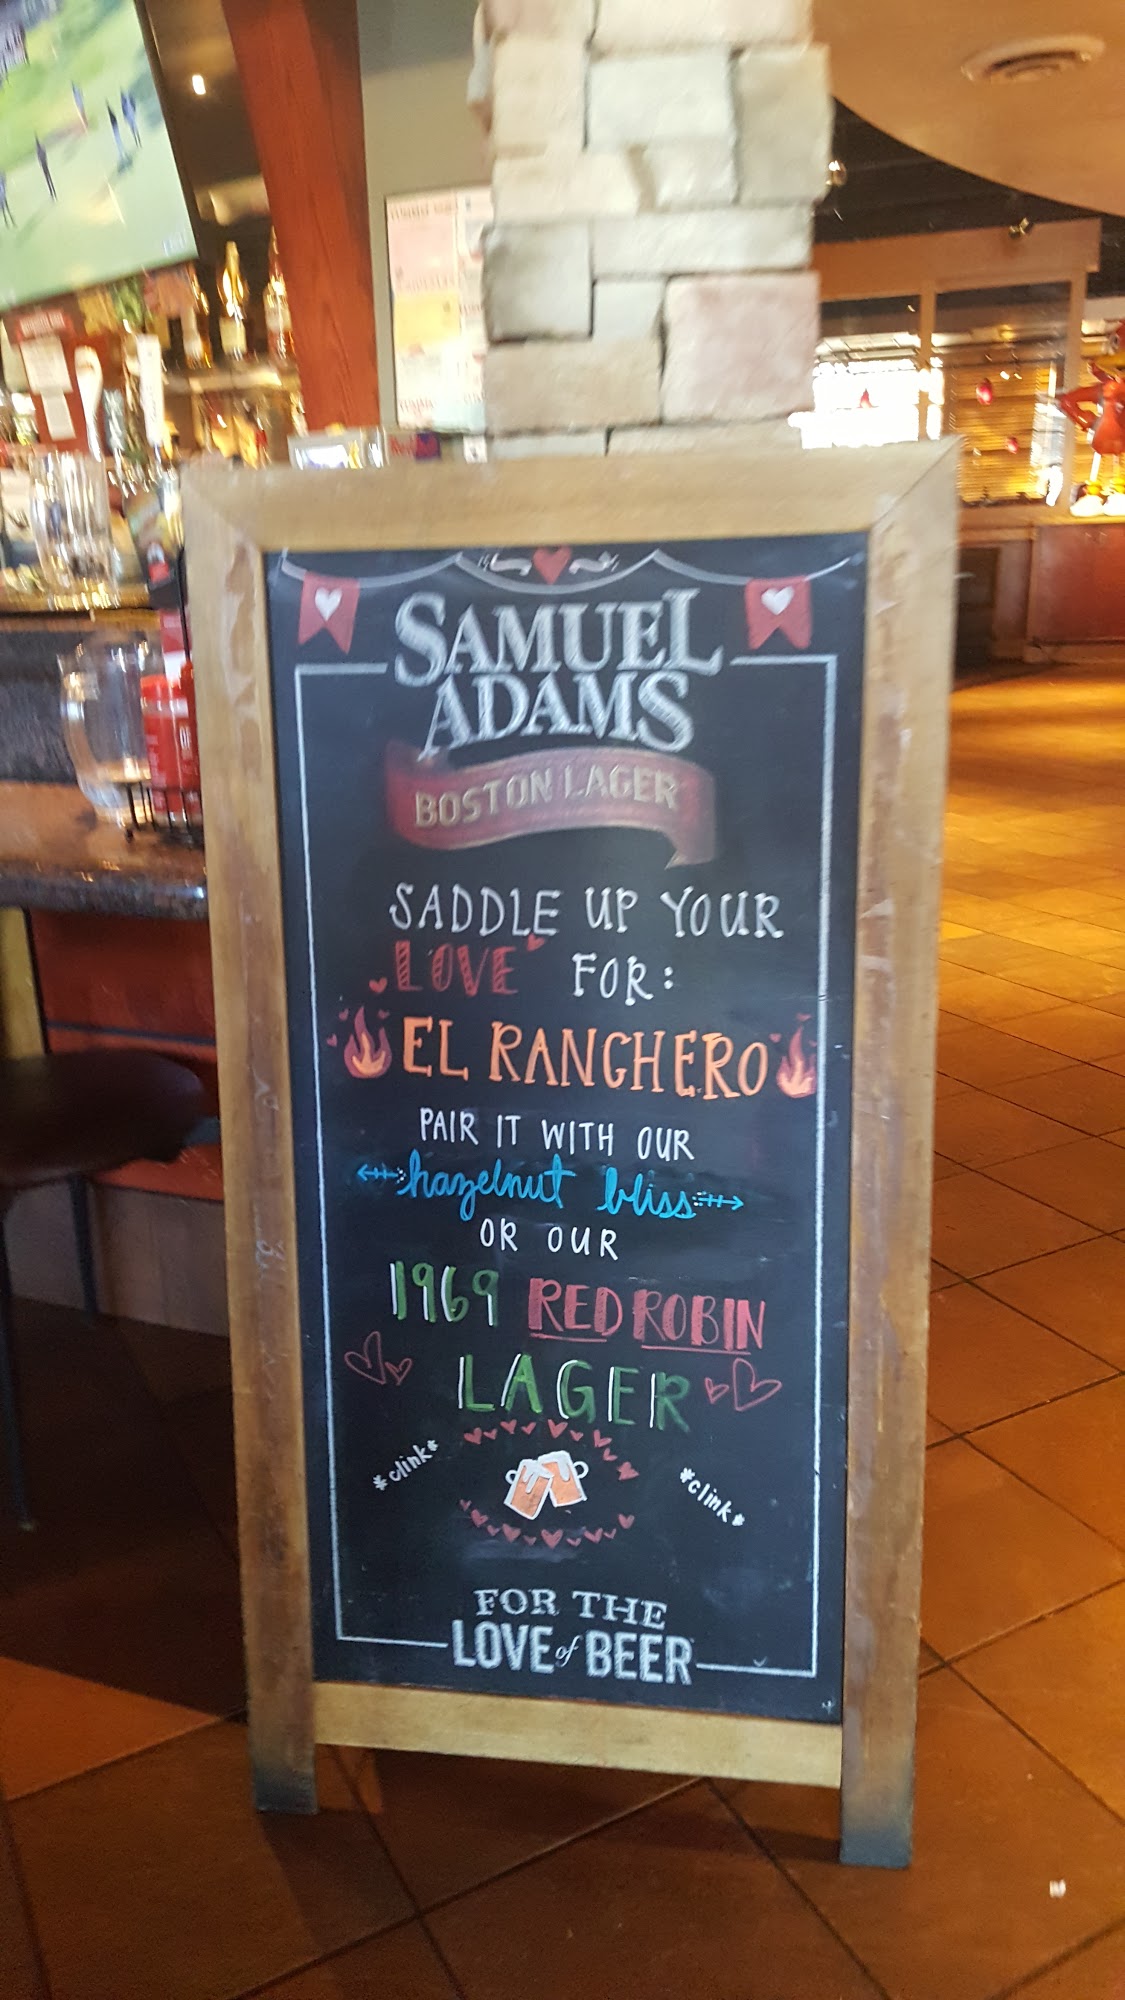 SAMUEL
ADAMS
BOSTON LAGER
SADDLE UP YOUR
LOVE FOR:
EL RANCHERO
PAIR IT WITH OUR
hazelnut bliss
OR OUR
1969 RED ROBIN
LAGER
*clink*
*clink*
FOR THE
LOVE of BEER